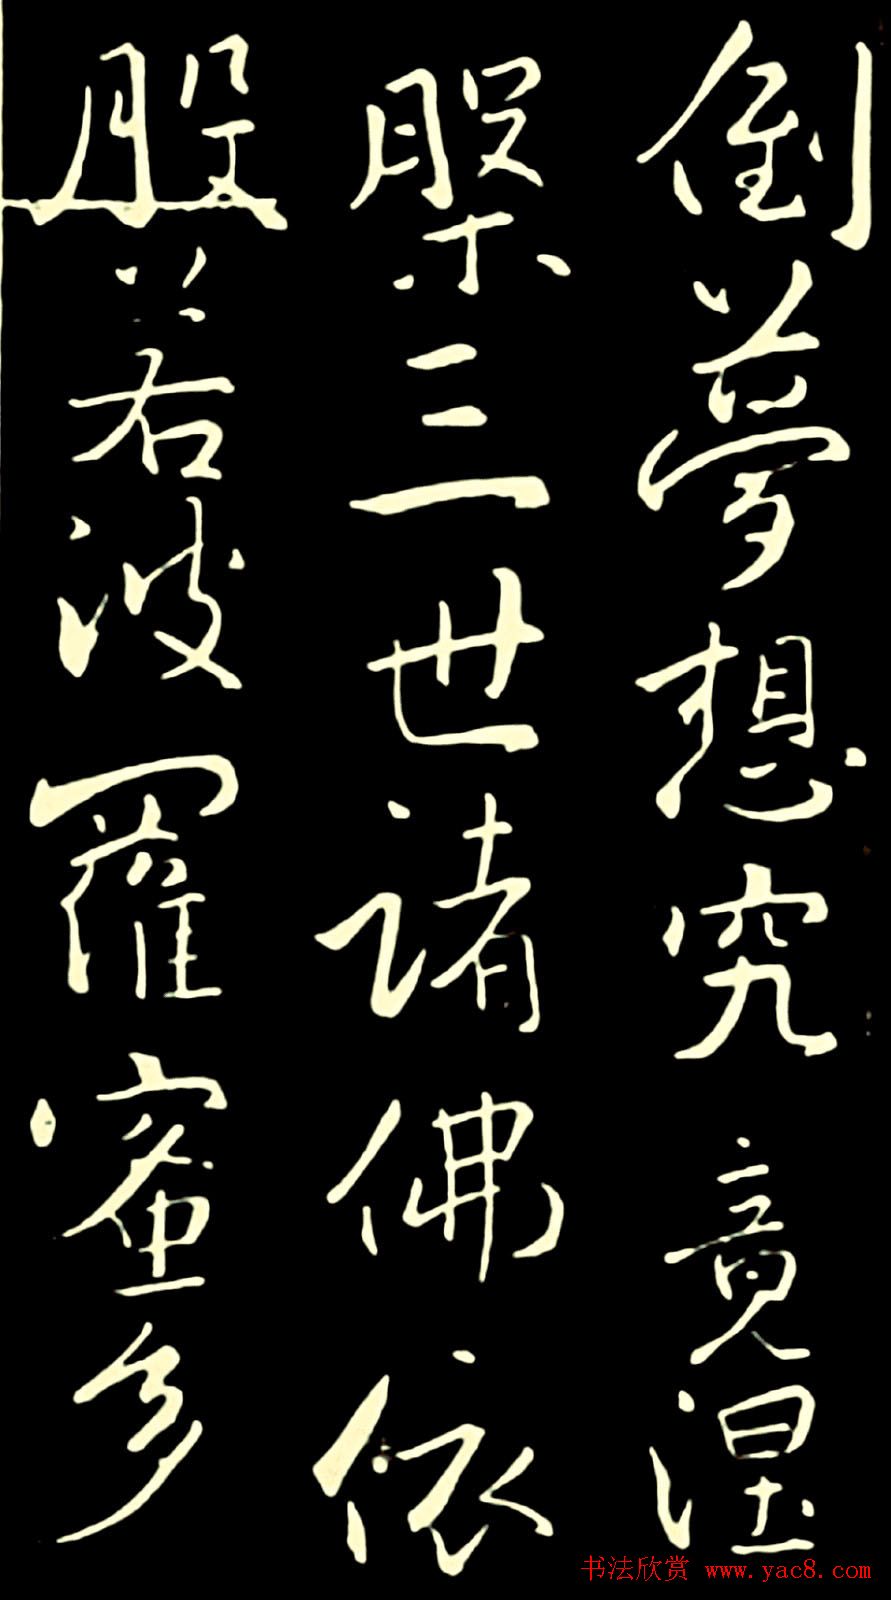 倒夢想究竟涅
槃三世諸佛依
般若波羅蜜多
书法欣赏 www.yac8.com